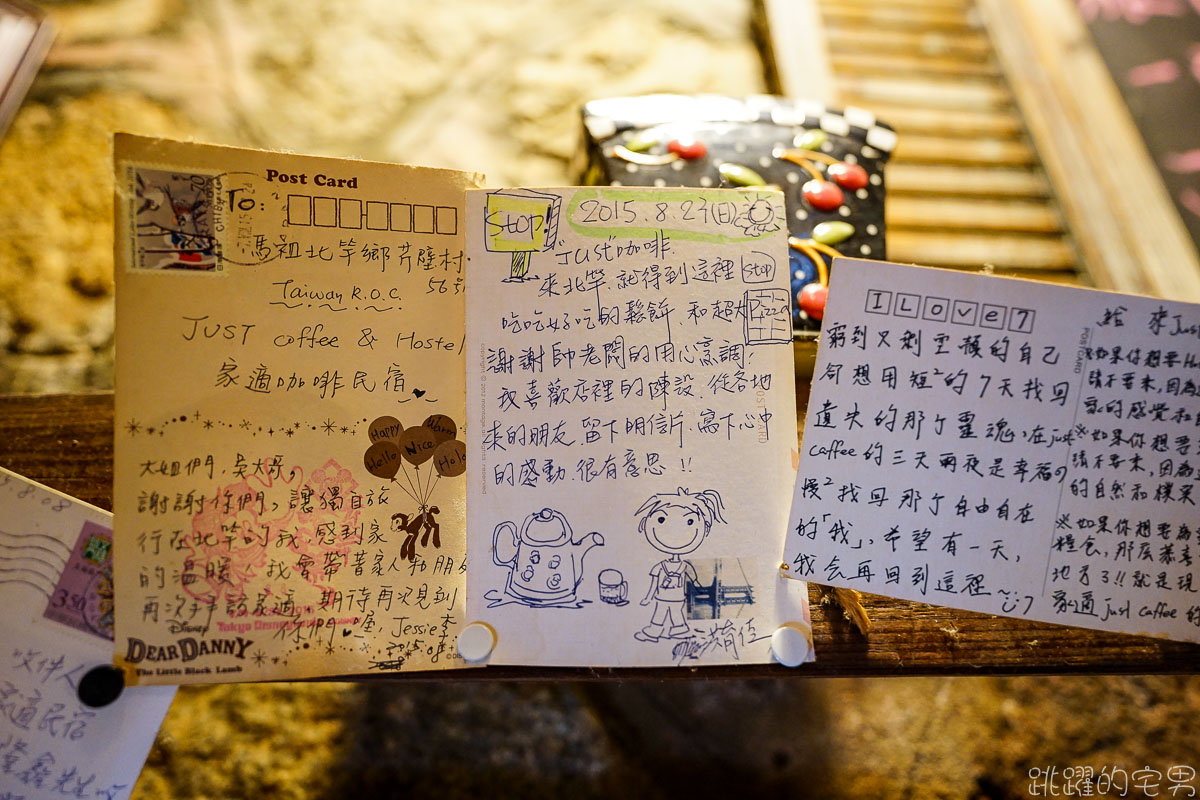 Post Card
To:
馬祖北竿鄉芹壁村
56號
Taiwan R.O.C.
JUST coffee & Hostel
家適咖啡民宿
Happy
Warm
Nice
Hello
Hola
大姐們,吳大哥。
謝謝你們,讓獨自旅
行在北竿的我,感到家
的溫暖,我會帶著家人和朋
再次拜訪家適,期待再次見到
你們
Jessie李
Disney
DEAR DANNY
The Little Black Lamb
Stop!
2015.8.23(日)
"JUST"咖啡
來北竿,就得到這裡 Stop
吃吃好吃的鬆餅,和超大 Pizza
謝謝帥老闆的用心烹調!
我喜歡店裡的陳設,從各地
來的朋友,留下明信片,寫下心中
的感動,很有意思!!
I LOVE 7
窮到只剩靈魂的自己
卻想用短²的7天找回
遺失的那个靈魂,在just
caffee的三天兩夜是幸福の
慢²找回那个自由自在
的「我」,希望有一天,
我会再回到這裡~
給 來Just
※如果你想要
請不要來,因為
的感覺和
※如果你想要
請不要來,因為
的自然和樸素
※如果你想要
糧食,那麼恭喜
地方了!!就是現
家適just caffee的
5.8.08
350
收件人
家適民宿
先生
跳躍的宅男